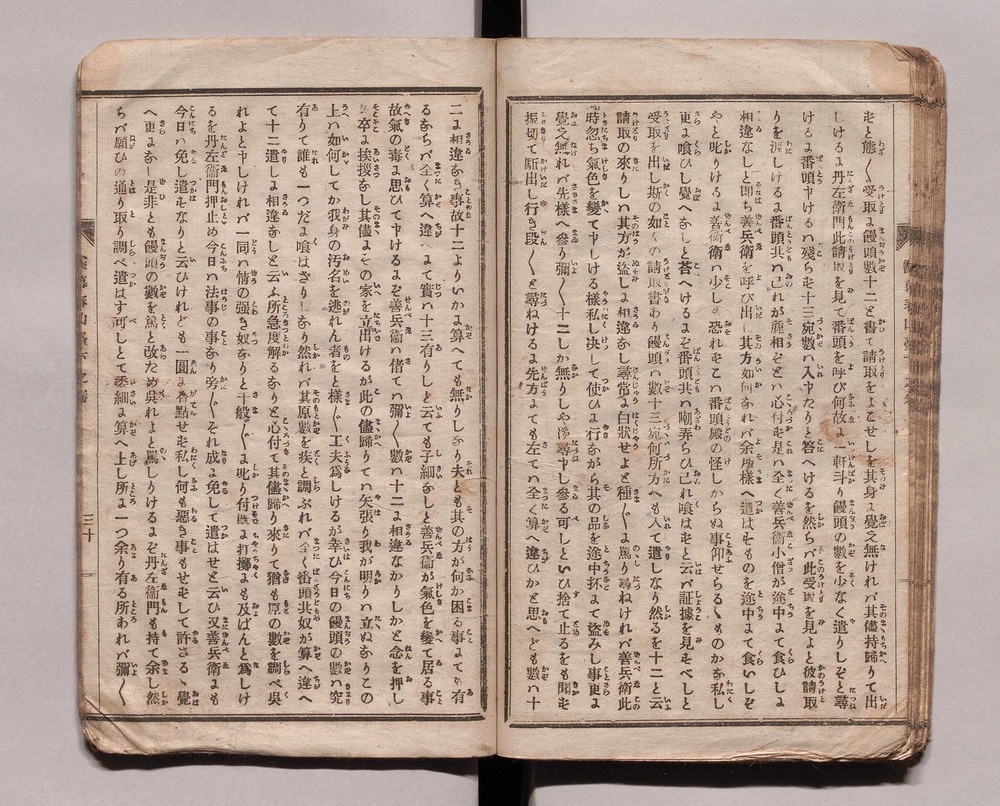 もと態〱受取よ饅頭數十二と書て請取をよこせしを其身よ覺え無けれバ其儘持歸りて出
しけるよ丹左衞門此請取を見て番頭を呼び何故よ軒斗り饅頭の數を少なく遣りしぞと尋
けるよ番頭申けるハ殘らせ十三宛數ハ入申たりと答へけるを然らバ此受取を見よと彼請取
りを渡しけるよ番頭共ハ己れが麁相ぞとハ心付も是ハ全く善兵衞小僧が途中よて食ひしよ
相違なしと卽ち善兵衞を呼び出し其方如何なれバ余所樣へ遣はそものを途中よて食いしぞ
やと叱りけるよ善兵衞ハ少しも恐れもこハ番頭殿の怪しからぬ事仰せらるゝものかな私し
更よ喰ひし覺へなしと答へけるよぞ番頭共ハ嘲弄らひ己れ喰はもと云バ証據を見もべしと
受取を出し斯の如くの請取書わり饅頭の數十三宛何所方へも入て遣しなり然るを十二と云
請取の來りしハ其方が盜しよ相違なし尋常よ白狀せよと種〱よ罵り尋ねけれバ善兵衞此
時忽ち氣色を變て申しける樣私し决して使ひよ行ながら其の品を途中抔よて盜みし事更よ
覺之無れバ先樣へ參り彌〱十二しか無りしや得尋申し參る可しといひ捨て止るをも聞も
振切て駈出し行き段〱と尋ねけるよ先方よても左て全く算へ違ひかと思へども數ハ十
二よ相違なき事故十二よりいかよ算へても無りしなり夫とも其の方が何か困る事よても有
るならバ全く算へ違へよて實ハ十三有りしと云ても子細なしと善兵衞が氣色を變へて居る事
故氣の毒よ思ひて申けるよぞ善兵衞ハ偖てハ彌〱數ハ十二よ相違なかりしかと念を押し
卒よ挨拶なし其儘よその家を立出けるが此の儘歸りてハ矢張り我が明りハ立ぬなりこの
上ハ如何してか我身の汚名を逃れん者をと樣〱工夫爲しけるが幸ひ今日の饅頭の數ハ究
有りて誰も一つだよ喰はざりしなり然れバ其原數を疾と調ぶれバ全く番頭共奴が算へ違へ
て十二遣しよ相違なしと云ふ所急度解るなりと心付て其儘歸り來りて猶も原の數を調べ吳
れよと申しけれバ一同ハ情の强き奴なりと十般〱よ叱り付既よ打擲よも及ばんと爲しけ
るを丹左衞門押止め今日ハ法事の事なり旁〱それ成よ免して遣はせと云ひ又善兵衞よも
今日ハ免し遣もなりと云ひけれども一圓よ合點せも私し何も惡き事もせもして許さるゝ覺
へ更よなし是非とも饅頭の數を篤と改ため吳れよと罵しりけるよぞ丹左衞門も持て余し然
らバ願ひの通り取り調べ遣はす可しとて委細よ算へ上し所よ一つ余り有る所あれバ彌〱
三十